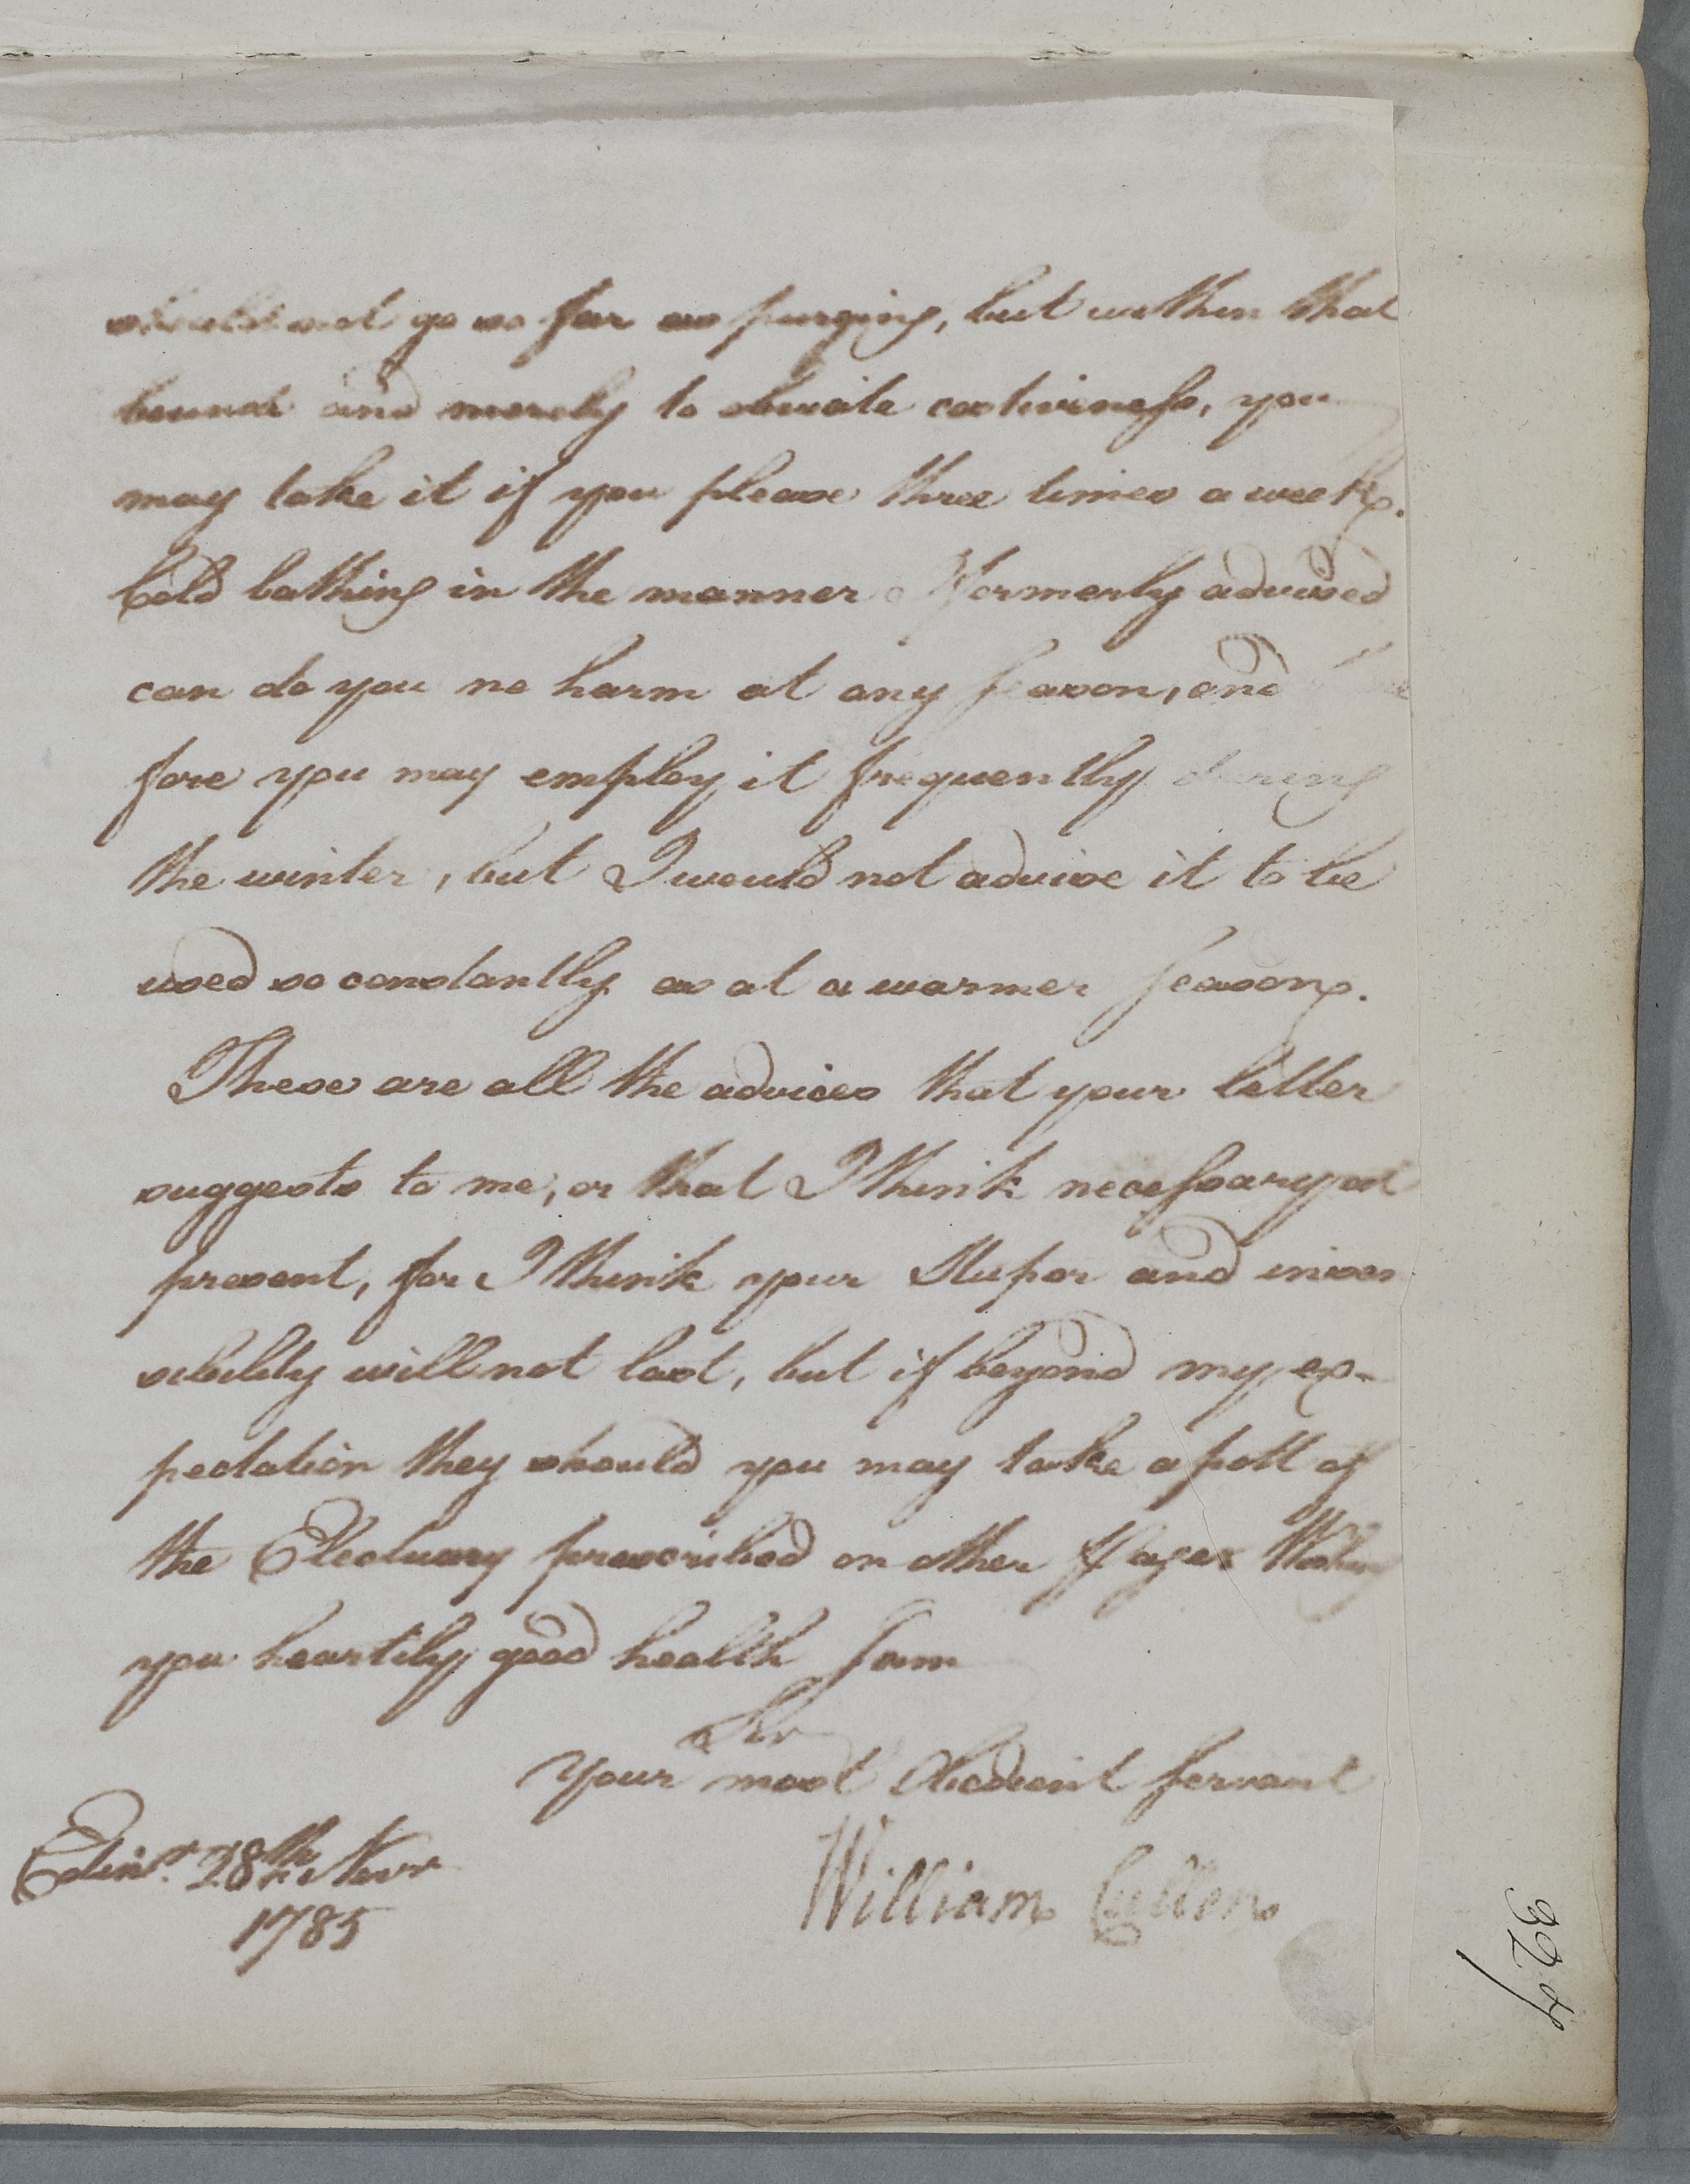 should not go so far as purging, but within that
bounds and merely to obviate costiveness, you
may take it if you please three times a week.
Cold bathing in the manner I formerly advised
can do you no harm at any season, and
fore you may employ it frequently during
the winter, but I would not advise it to be
used so constantly as at a warmer season.
These are all the advices that your letter
suggests to me, or that I think necessary at
present, for I think your Stupor and insen
sibility will not last, but if beyond my ex-
pectation they should you may take a pott of
the Electuary prescribed on other page Wishing
you heartily good health I am
Sir
Your most Obedient servant
William Cullen
Edinr. 28th Novr
1785
324